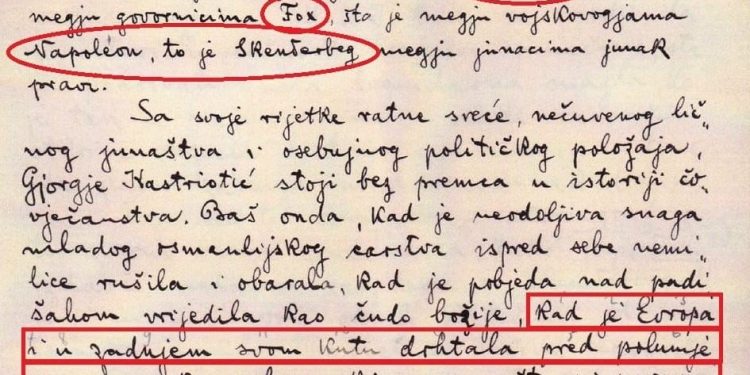 megju govornicima Fox, što je megju vojskovogjama
Napoléon, to je Skenderbeg megju junacima junak
pravi.
Sa svoje rijetke ratne sreće, nečuvenog lič„
nog junaštva i osebujnog političkog položaja,
Gjorgje Kastriotić stoji bez premca u istoriji čo„
vječanstva. Baš onda, kad je neodoljiva snaga
mladog osmanlijskog carstva ispred sebe nemi„
lice rušila i obarala, kad je pobjeda nad padi
šahom vrijedila kao čudo božije, kad je Evropa
i u zadnjem svom kutu drhtala pred polumje